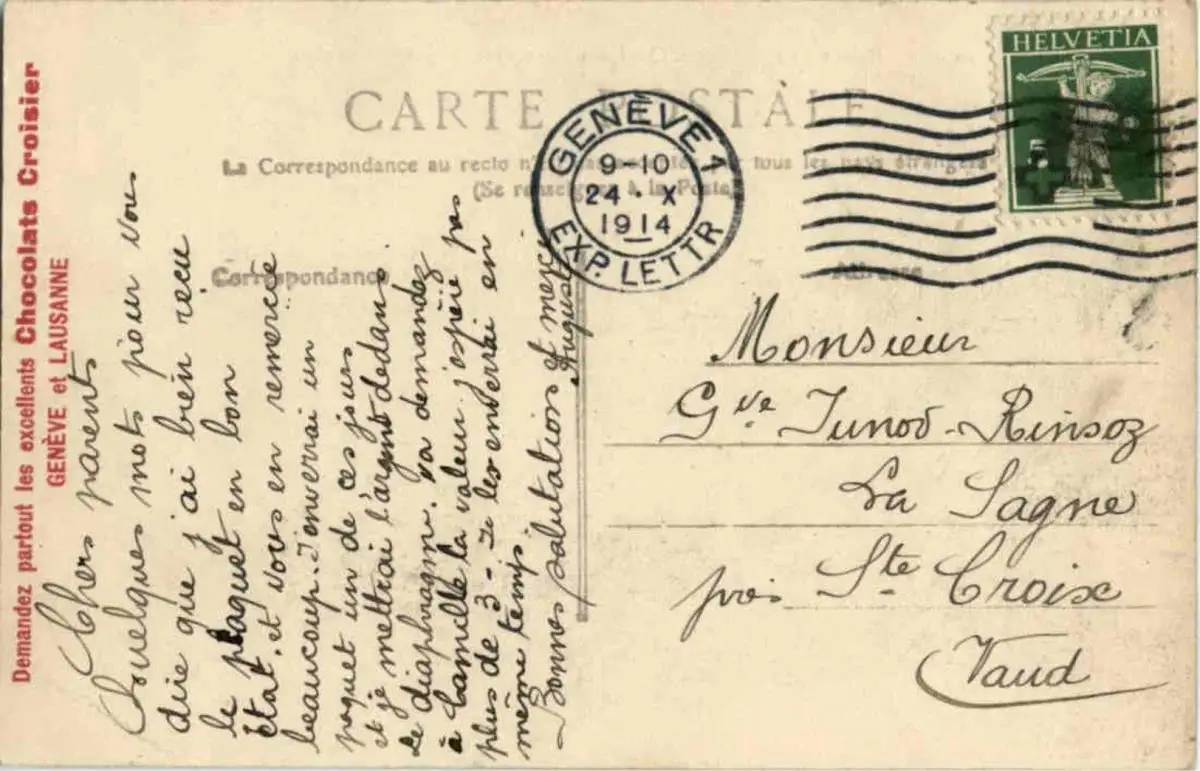 Demandez partout les excellents Chocolats Croisier
GENÈVE et LAUSANNE
CARTE POSTALE
La Correspondance au recto n' tous les pays étrangers
(Se renseigner à la Poste)
Correspondance
Adresse
GENÈVE 1
9-10
24 · X
1914
EXP. LETTR
HELVETIA
Chers parents
Quelques mots pour vous
dire que j'ai bien reçu
le paquet en bon
État. et vous en remercie
beaucoup. J'enverrai un
paquet un de ces jours
et je mettrai l'argent dedans
Le diaphragme. va demandez
à Camille la valeur j'espère pas
plus de 3 - Je les enverrai en
même temps
Bonnes salutations et merci
Auguste
Monsieur
Gve Junod-Rinsoz
La Sagne
près Ste Croix
Vaud